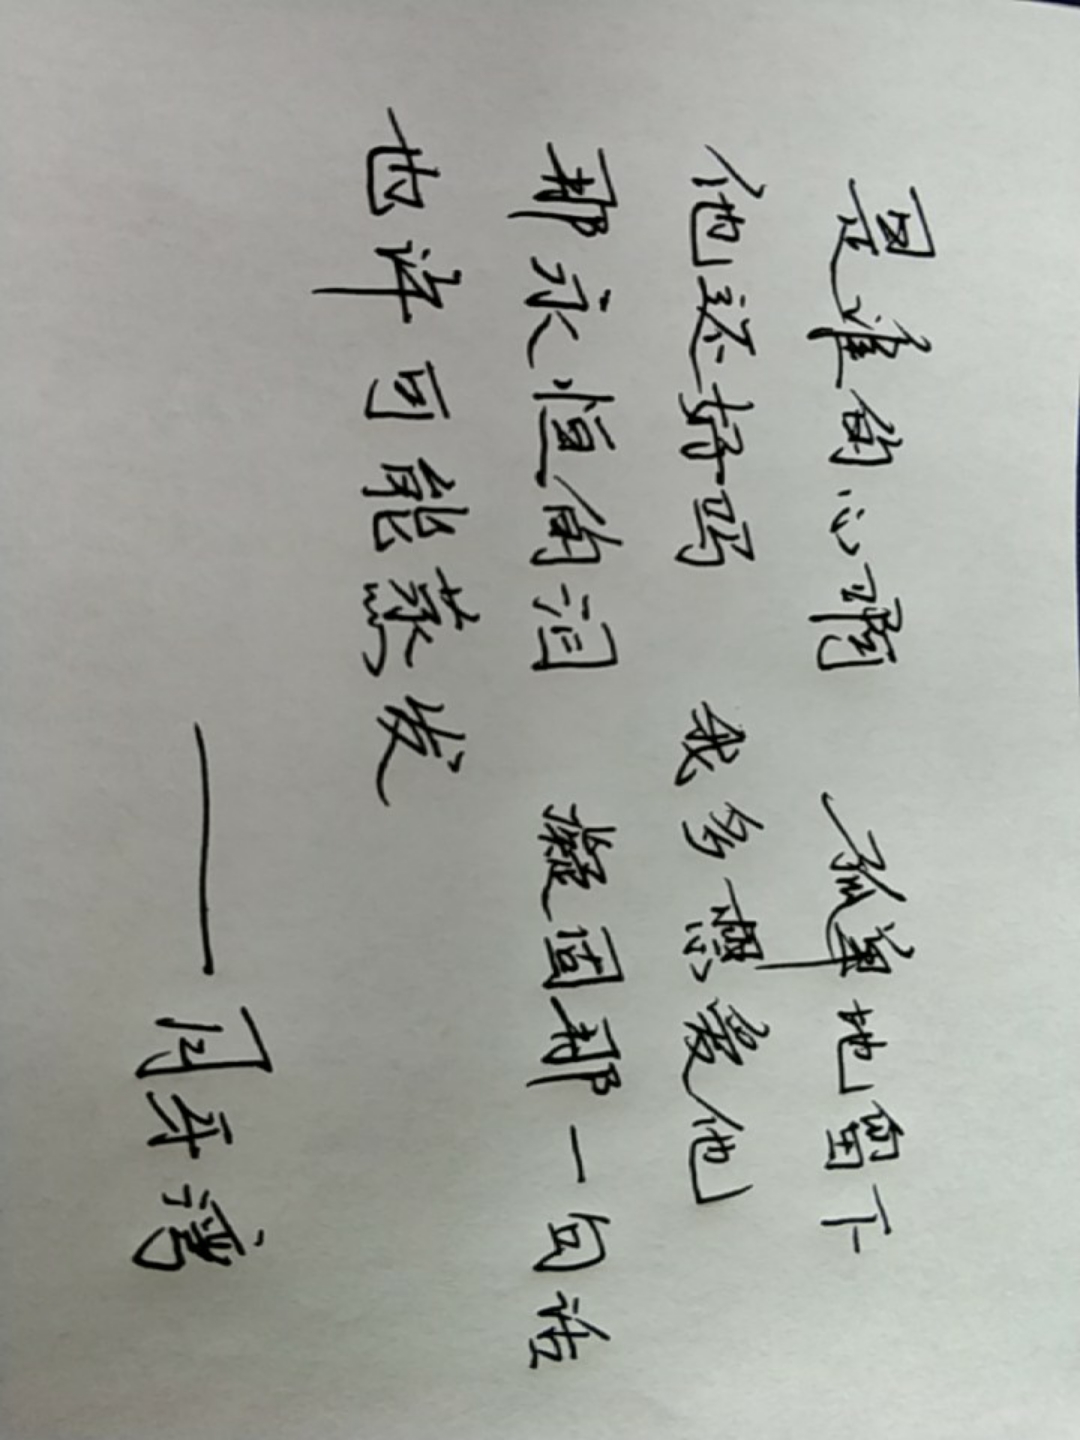 是谁的心啊 孤单地留下
他还好吗 我多想爱他
那永恒的泪 凝固那一句话
也许可能蒸发
——月牙湾